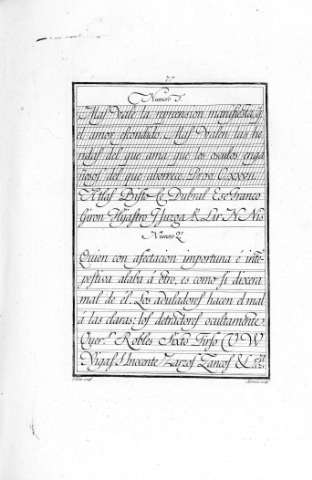 27
Numero 1º
Mas vale la reprension manifiesta, q.
el amor escondido. Mas valen las he-
ridas del que ama que los osculos enga-
ñosos del que aborrece. Prov. CXXVII.
Atlas Bista Dubral Ese Franco
Giron Hijastro Juzga K Lar N Nio
Numero 2º
Quien con afectacion importuna é intē-
pestiva alaba á otro, es como si dixera
mal de él. Los aduladores hacen el mal
á las claras: los detractores ocultamente.
Robles Sixto Tirso V W
Inocente Zarzos Zancos &